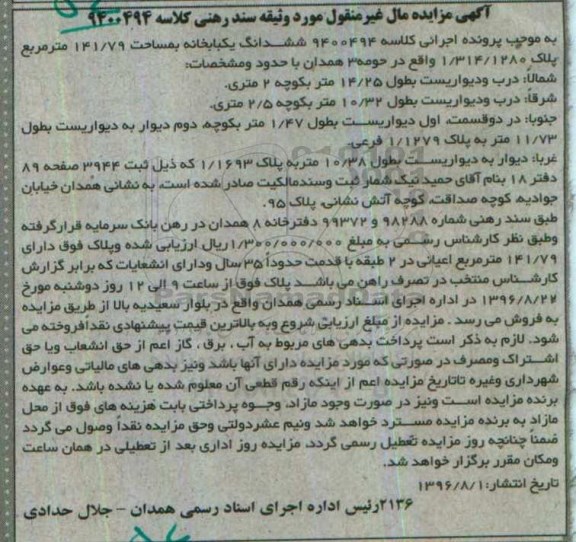 آگهی مزایده مال غیرمنقول مورد وثیقه سند رهنی کلاسه ۹۴۰۰۴۹۴
به موجب پرونده اجرائی کلاسه ۹۴۰۰۴۹۴ ششدانگ یکبابخانه بمساحت ۱۴۱/۷۹ مترمربع
پلاک ۱/۳۱۴/۱۲۸۰ واقع در حومه۳ همدان با حدود ومشخصات:
شمالا: درب ودیواریست بطول ۱۴/۲۵ متر بکوچه ۲ متری.
شرقا: درب ودیواریست بطول ۱۰/۳۲ متر بکوچه ۲/۵ متری.
جنوبا: در دوقسمت، اول دیواریست بطول ۱/۴۷ متر بکوچه، دوم دیوار به دیواریست بطول
۱۱/۷۳ متر به پلاک ۱/۱۲۷۹ فرعی.
غربا: دیوار به دیواریست بطول ۱۰/۳۸ متربه پلاک ۱/۱۶۹۳ که ذیل ثبت ۳۹۴۴ صفحه ۸۹
دفتر ۱۸ بنام آقای حمید نیک شمار ثبت وسندمالکیت صادر شده است، به نشانی همدان خیابان
جوادیه، کوچه صداقت، کوچه آتش نشانی، پلاک ۹۵.
طبق سند رهنی شماره ۹۸۲۸۸ و ۹۹۳۷۲ دفترخانه ۸ همدان در رهن بانک سرمایه قرارگرفته
وطبق نظر کارشناس رسمی به مبلغ ۱/۳۰۰/۰۰۰/۰۰۰ریال ارزیابی شده وپلاک فوق دارای
۱۴۱/۷۹ مترمربع اعیانی در ۲ طبقه با قدمت حدودا ۳۵ سال ودارای انشعابات که برابر گزارش
کارشناس منتخب در تصرف راهن می باشد پلاک فوق از ساعت ۹ الی ۱۲ روز دوشنبه مورخ
۱۳۹۶/۸/۲۲ در اداره اجرای اسناد رسمی همدان واقع در بلوار سعیدیه بالا از طریق مزایده
به فروش می رسد. مزایده از مبلغ ارزیابی شروع وبه بالاترین قیمت پیشنهادی نقدافروخته می
شود. لازم به ذکر است پرداخت بدهی های مربوط به آب، برق، گاز اعم از حق انشعاب ویا حق
اشتراک ومصرف در صورتی که مورد مزایده دارای آنها باشد ونیز بدهی های مالیاتی وعوارض
شهرداری وغیره تاتاریخ مزایده اعم از اینکه رقم قطعی آن معلوم شده یا نشده باشد. به عهده
برنده مزایده است ونیز در صورت وجود مازاد، وجوه پرداختی بابت هزینه های فوق از محل
مازاد به برنده مزایده مسترد خواهد شد ونیم عشردولتی وحق مزایده نقداً وصول می گردد
ضمنا چنانچه روز مزایده تعطیل رسمی گردد، مزایده روز اداری بعد از تعطیلی در همان ساعت
ومکان مقرر برگزار خواهد شد.
تاریخ انتشار: ۱۳۹۶/۸/۱
۲۱۳۶رئیس اداره اجرای اسناد رسمی همدان - جلال حدادی